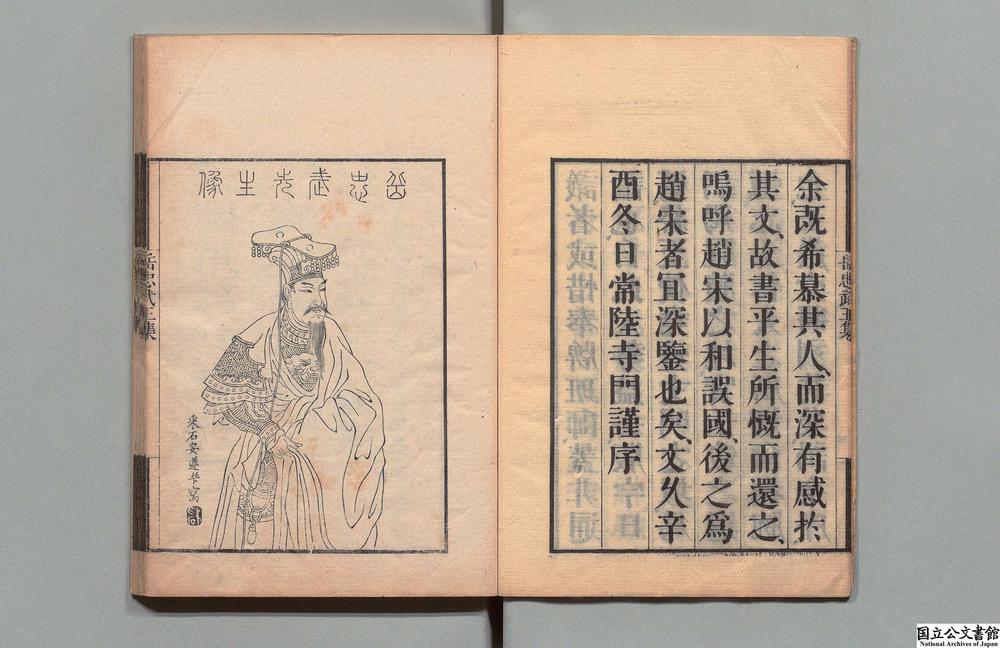 余既希慕其人、而深有感於
其文、故書平生所慨而還之、
嗚呼趙宋以和誤國、後之爲
趙宋者宜深鑒也矣、文久辛
酉冬日常陸寺門謹序
岳忠武王集
岳忠武先生像
采石安遵 寫
岳忠武王集
国立公文書館
National Archives of Japan